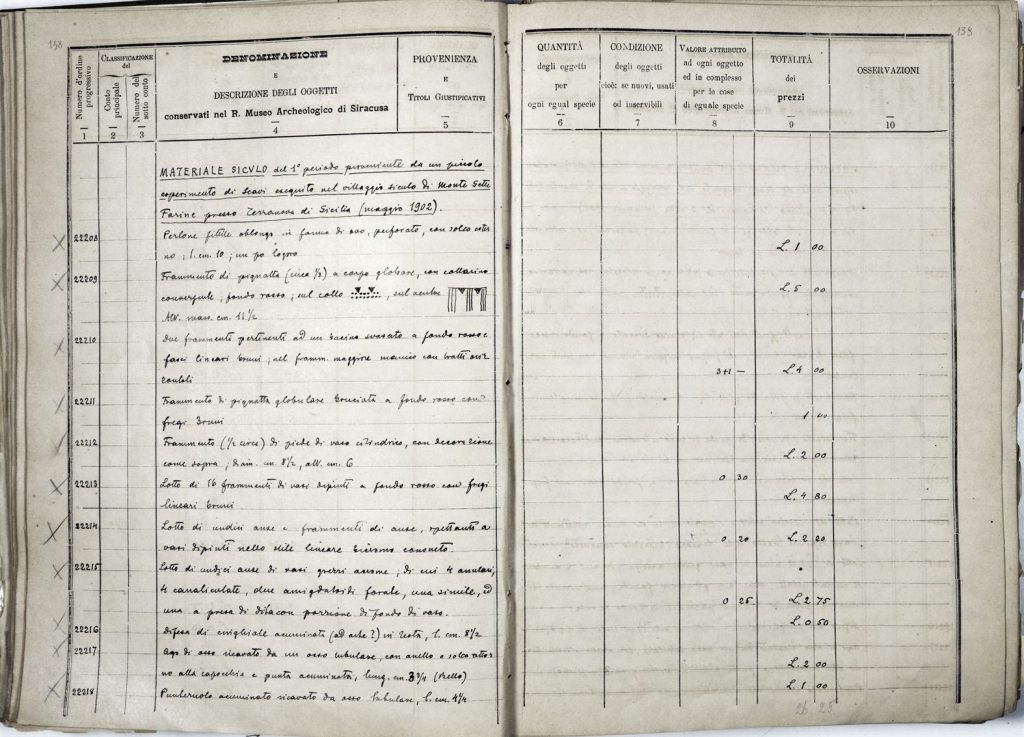 138
Numero d'ordine progressivo
1
CLASSIFICAZIONE
del
Conto principale
2
Numero del sotto conto
3
DENOMINAZIONE
E
DESCRIZIONE DEGLI OGGETTI
conservati nel R. Museo Archeologico di Siracusa
4
PROVENIENZA
E
TITOLI GIUSTIFICATIVI
5
MATERIALE SICULO del 1° periodo proveniente da un piccolo
esperimento di scavi eseguito nel villaggio siculo di Monte Sette
Farine presso Terranova di Sicilia (maggio 1902).
22208 fittile oblongo in forma di uovo, perforato, con solco ester
no; l. cm. 10; un po logoro
22209 Frammento di pignatta (circa 1/3) a corpo globare, con collarino
convergente; fondo rosso; sul collo , sul ventre
Alt. mass. cm. 11 1/2
22210 Due frammenti pertinenti ad un bacino svasato a fondo rosso e
fasci lineari bruni; nel framm. maggiore manico con tratti oriz
zontali
22211 Frammento di pignatta globulare bruciata a fondo rosso con
fregi bruni
22212 Frammento (1/2 circa) di piede di vaso cilindrico, con decorazione
come sopra; diam. cm. 8 1/2, alt. cm. 6
22213 Lotto di 16 frammenti di vasi dipinti a fondo rosso con fregi
lineari bruni
22214 Lotto di undici anse e frammenti di anse, spettanti a
vasi dipinti nello stile lineare consueto.
22215 Lotto di undici anse di vasi grezzi anome; di cui 4 anulari,
4 canaliculate, due amigdaloidi forate, una simile, ed
una a presa di dita con porzione di fondo di vaso.
22216 Difesa di cinghiale acuminata (ad arte?) in testa, l. cm. 8 1/2
22217 Ago di osso ricavato da un osso tubulare, con anello o solco attor
no alla capocchia e punta acuminata, lung. cm. 8 3/4 (Bello)
22218 Punteruolo acuminato ricavato da osso tubulare, l. cm. 4 1/4
139
QUANTITÀ
degli oggetti
per
ogni egual specie
6
CONDIZIONE
degli oggetti
cioè: se nuovi, usati
od inservibili
7
VALORE ATTRIBUITO
ad ogni oggetto
ed in complesso
per le cose
di eguale specie
8
TOTALITÀ
dei
prezzi
9
OSSERVAZIONI
10
L. 1 00
L. 5 00
3+1 — L. 4 00
1 00
L. 2 00
0 30
L. 4 80
0 20 L. 2 20
0 25 L. 2 75
L. 0 50
L. 2 00
L. 1 00
26 25